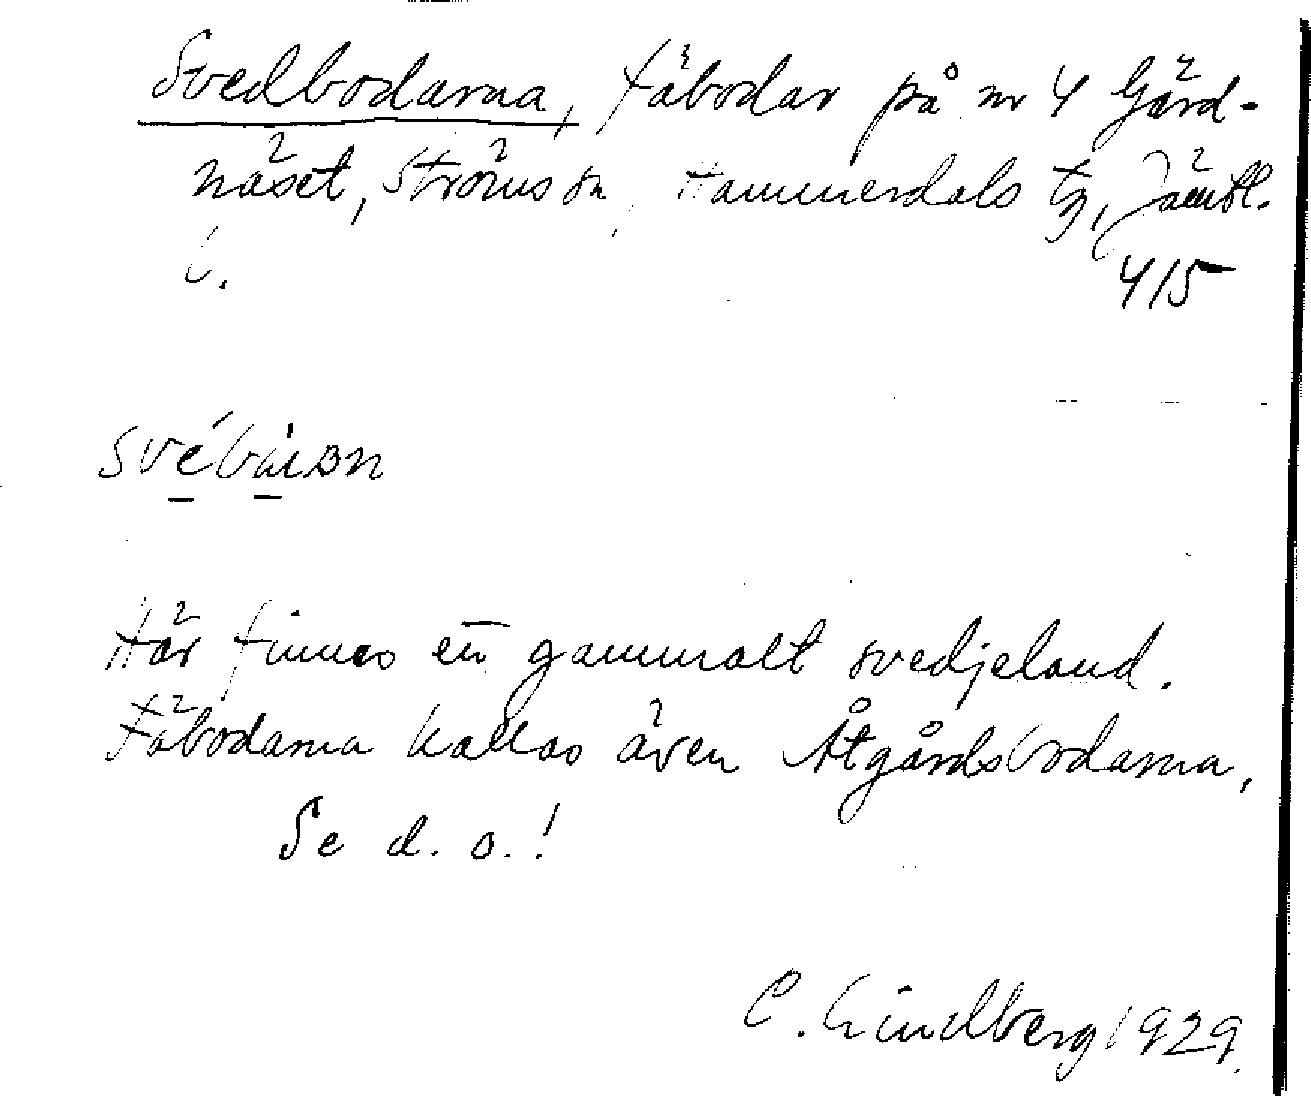 Svedbodarna, fäbodar på nr 4 Gärd-
näset, Ströms sn, Hammerdals tg, Jämtl.
l.
415
Här finnes ett gammalt svedjeland.
Fäbodarna kallas även Åtgårdsbodarna,
Se d. o.!
C. Lindberg 1929.